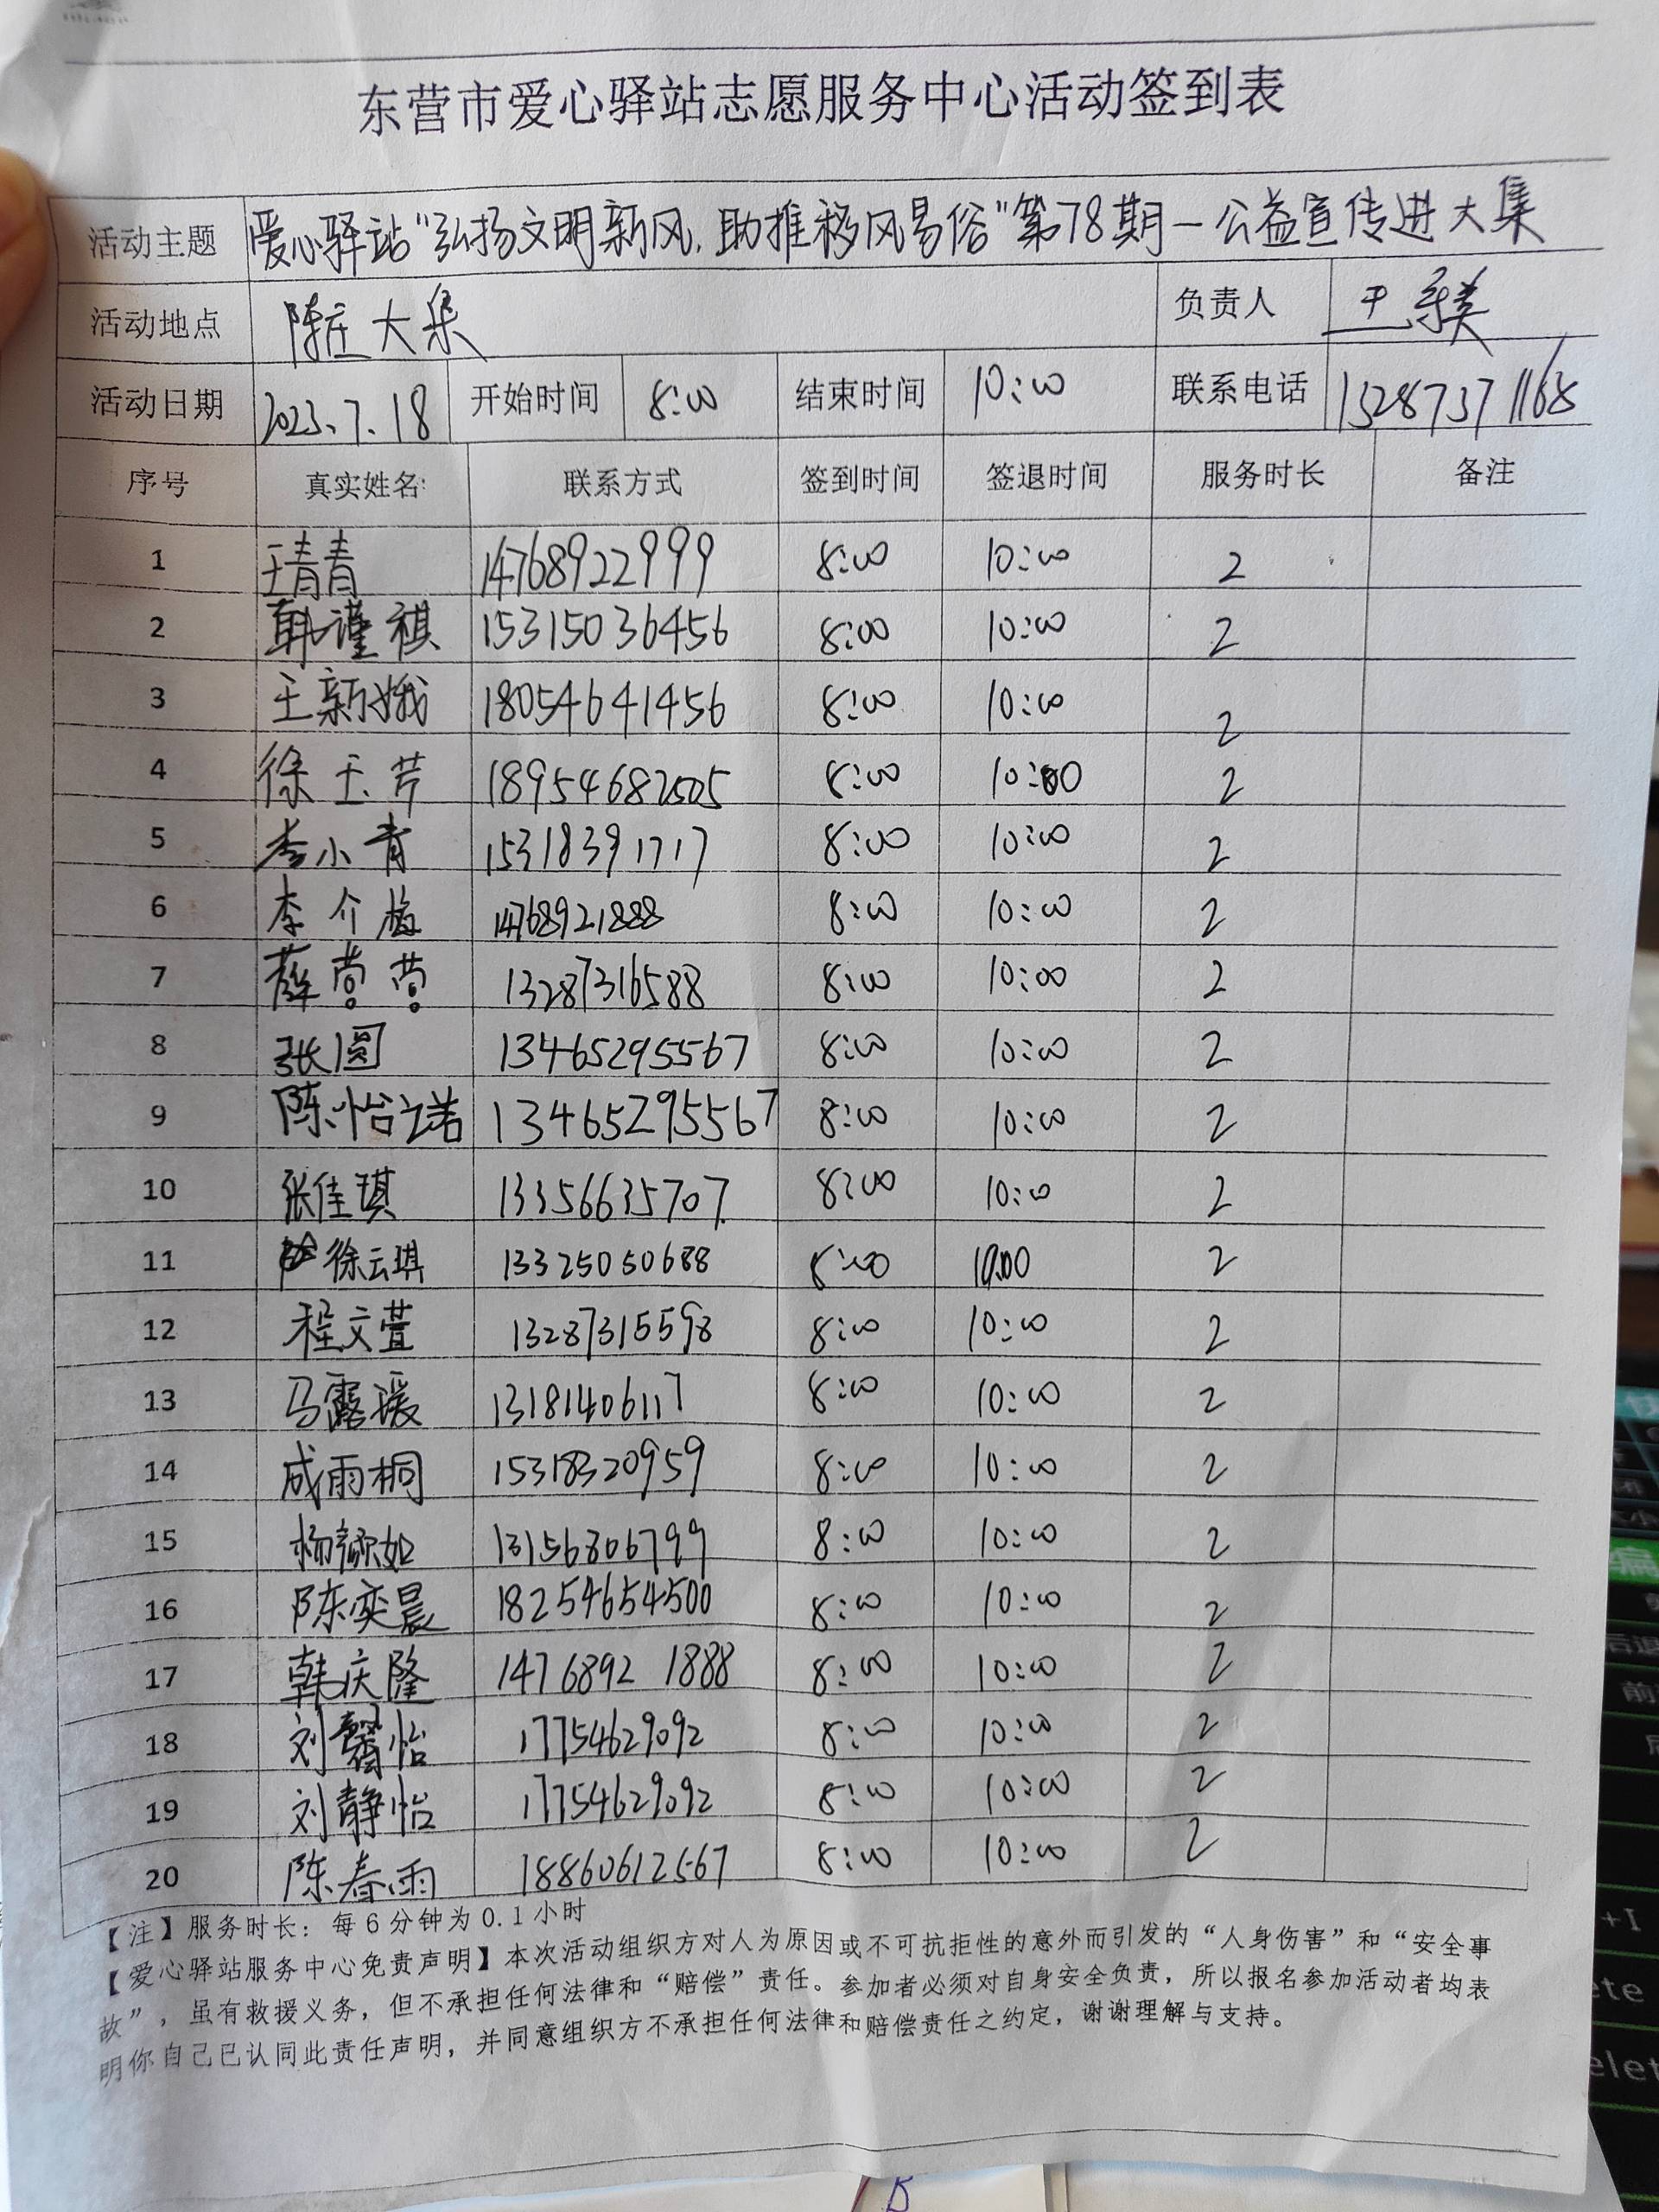 东营市爱心驿站志愿服务中心活动签到表
活动主题 爱心驿站“弘扬文明新风,助推移风易俗”第78期—公益宣传进大集
活动地点 陈庄大集 负责人
活动日期 2023.7.18 开始时间 8:00 结束时间 10:00 联系电话 15287371168
序号 真实姓名 联系方式 签到时间 签退时间 服务时长 备注
1 王青青 14768922999 8:00 10:00 2
2 韩谨祺 15315036456 8:00 10:00 2
3 王新娥 18054641456 8:00 10:00 2
4 徐玉芹 18954682505 8:00 10:00 2
5 李小青 15318391717 8:00 10:00 2
6 李介梅 14768921888 8:00 10:00 2
7 薛营营 13287316588 8:00 10:00 2
8 张圆 13465295567 8:00 10:00 2
9 陈怡诺 13465295567 8:00 10:00 2
10 张佳琪 13356635707 8:00 10:00 2
11 徐云琪 13325050688 8:00 10:00 2
12 程文萱 13287315598 8:00 10:00 2
13 马露瑗 13181406117 8:00 10:00 2
14 成雨桐 15318320959 8:00 10:00 2
15 杨颜如 13156806799 8:00 10:00 2
16 陈奕晨 18254654500 8:00 10:00 2
17 韩庆隆 14768921888 8:00 10:00 2
18 刘馨怡 17754629092 8:00 10:00 2
19 刘静怡 17754629092 8:00 10:00 2
20 陈春雨 18860612567 8:00 10:00 2
【注】服务时长:每6分钟为0.1小时
【爱心驿站服务中心免责声明】本次活动组织方对人为原因或不可抗拒性的意外而引发的“人身伤害”和“安全事
故”,虽有救援义务,但不承担任何法律和“赔偿”责任。参加者必须对自身安全负责,所以报名参加活动者均表
明你自己已认同此责任声明,并同意组织方不承担任何法律和赔偿责任之约定,谢谢理解与支持。